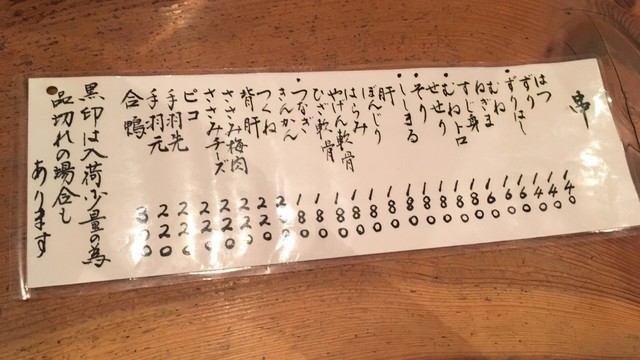 串
はつ 140
ずり 140
ずりはし 140
むね 160
ねぎま 160
すじ身 160
むねトロ 180
せせり 180
そり 180
ししまる 180
肝 180
ぼんじり 180
はらみ 180
やげん軟骨 180
ひざ軟骨 180
つなぎ 180
きんかん 180
つくね 220
背肝 220
ささみ梅肉 220
ささみチーズ 220
ピコ 220
手羽先 220
手羽元 220
合鴨 320
黒印は入荷少量の為
品切れの場合も
あります